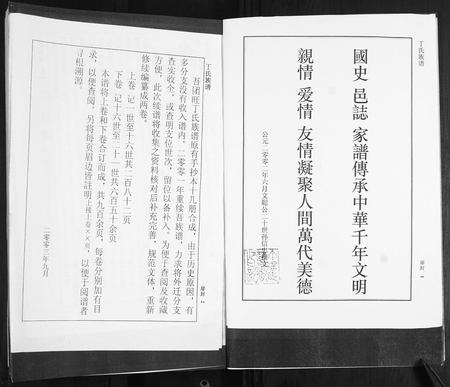 丁氏族谱
國史 邑誌 家譜傳承中華千年文明
親情 愛情 友情凝聚人間萬代美德
公元二零零二年六月文聪公二十世孙信
扉封 1
吾团旺丁氏族谱原有手抄本十几册合成，由于历史原因，有
多分支没有收入谱内，二零零一年重续吾族谱，力求将外迁分支
查实收全，或查明支位世次，留位以备补入。为便于查阅及收藏
方便，此次续谱将收集之资料核对后补充完善，规范文体，重新
修续编纂成两卷。
上卷 记一世至十六世共二百八十二页
下卷 记十六世至二十一世共六百五十余页
本谱将上卷和下卷合订而成，共九百余页，每卷分别加有目
录，以便查阅，另将每页眉边皆註明上接上卷×页，以便于阅谱者
寻根溯源。
二零零三年九月
扉封 2